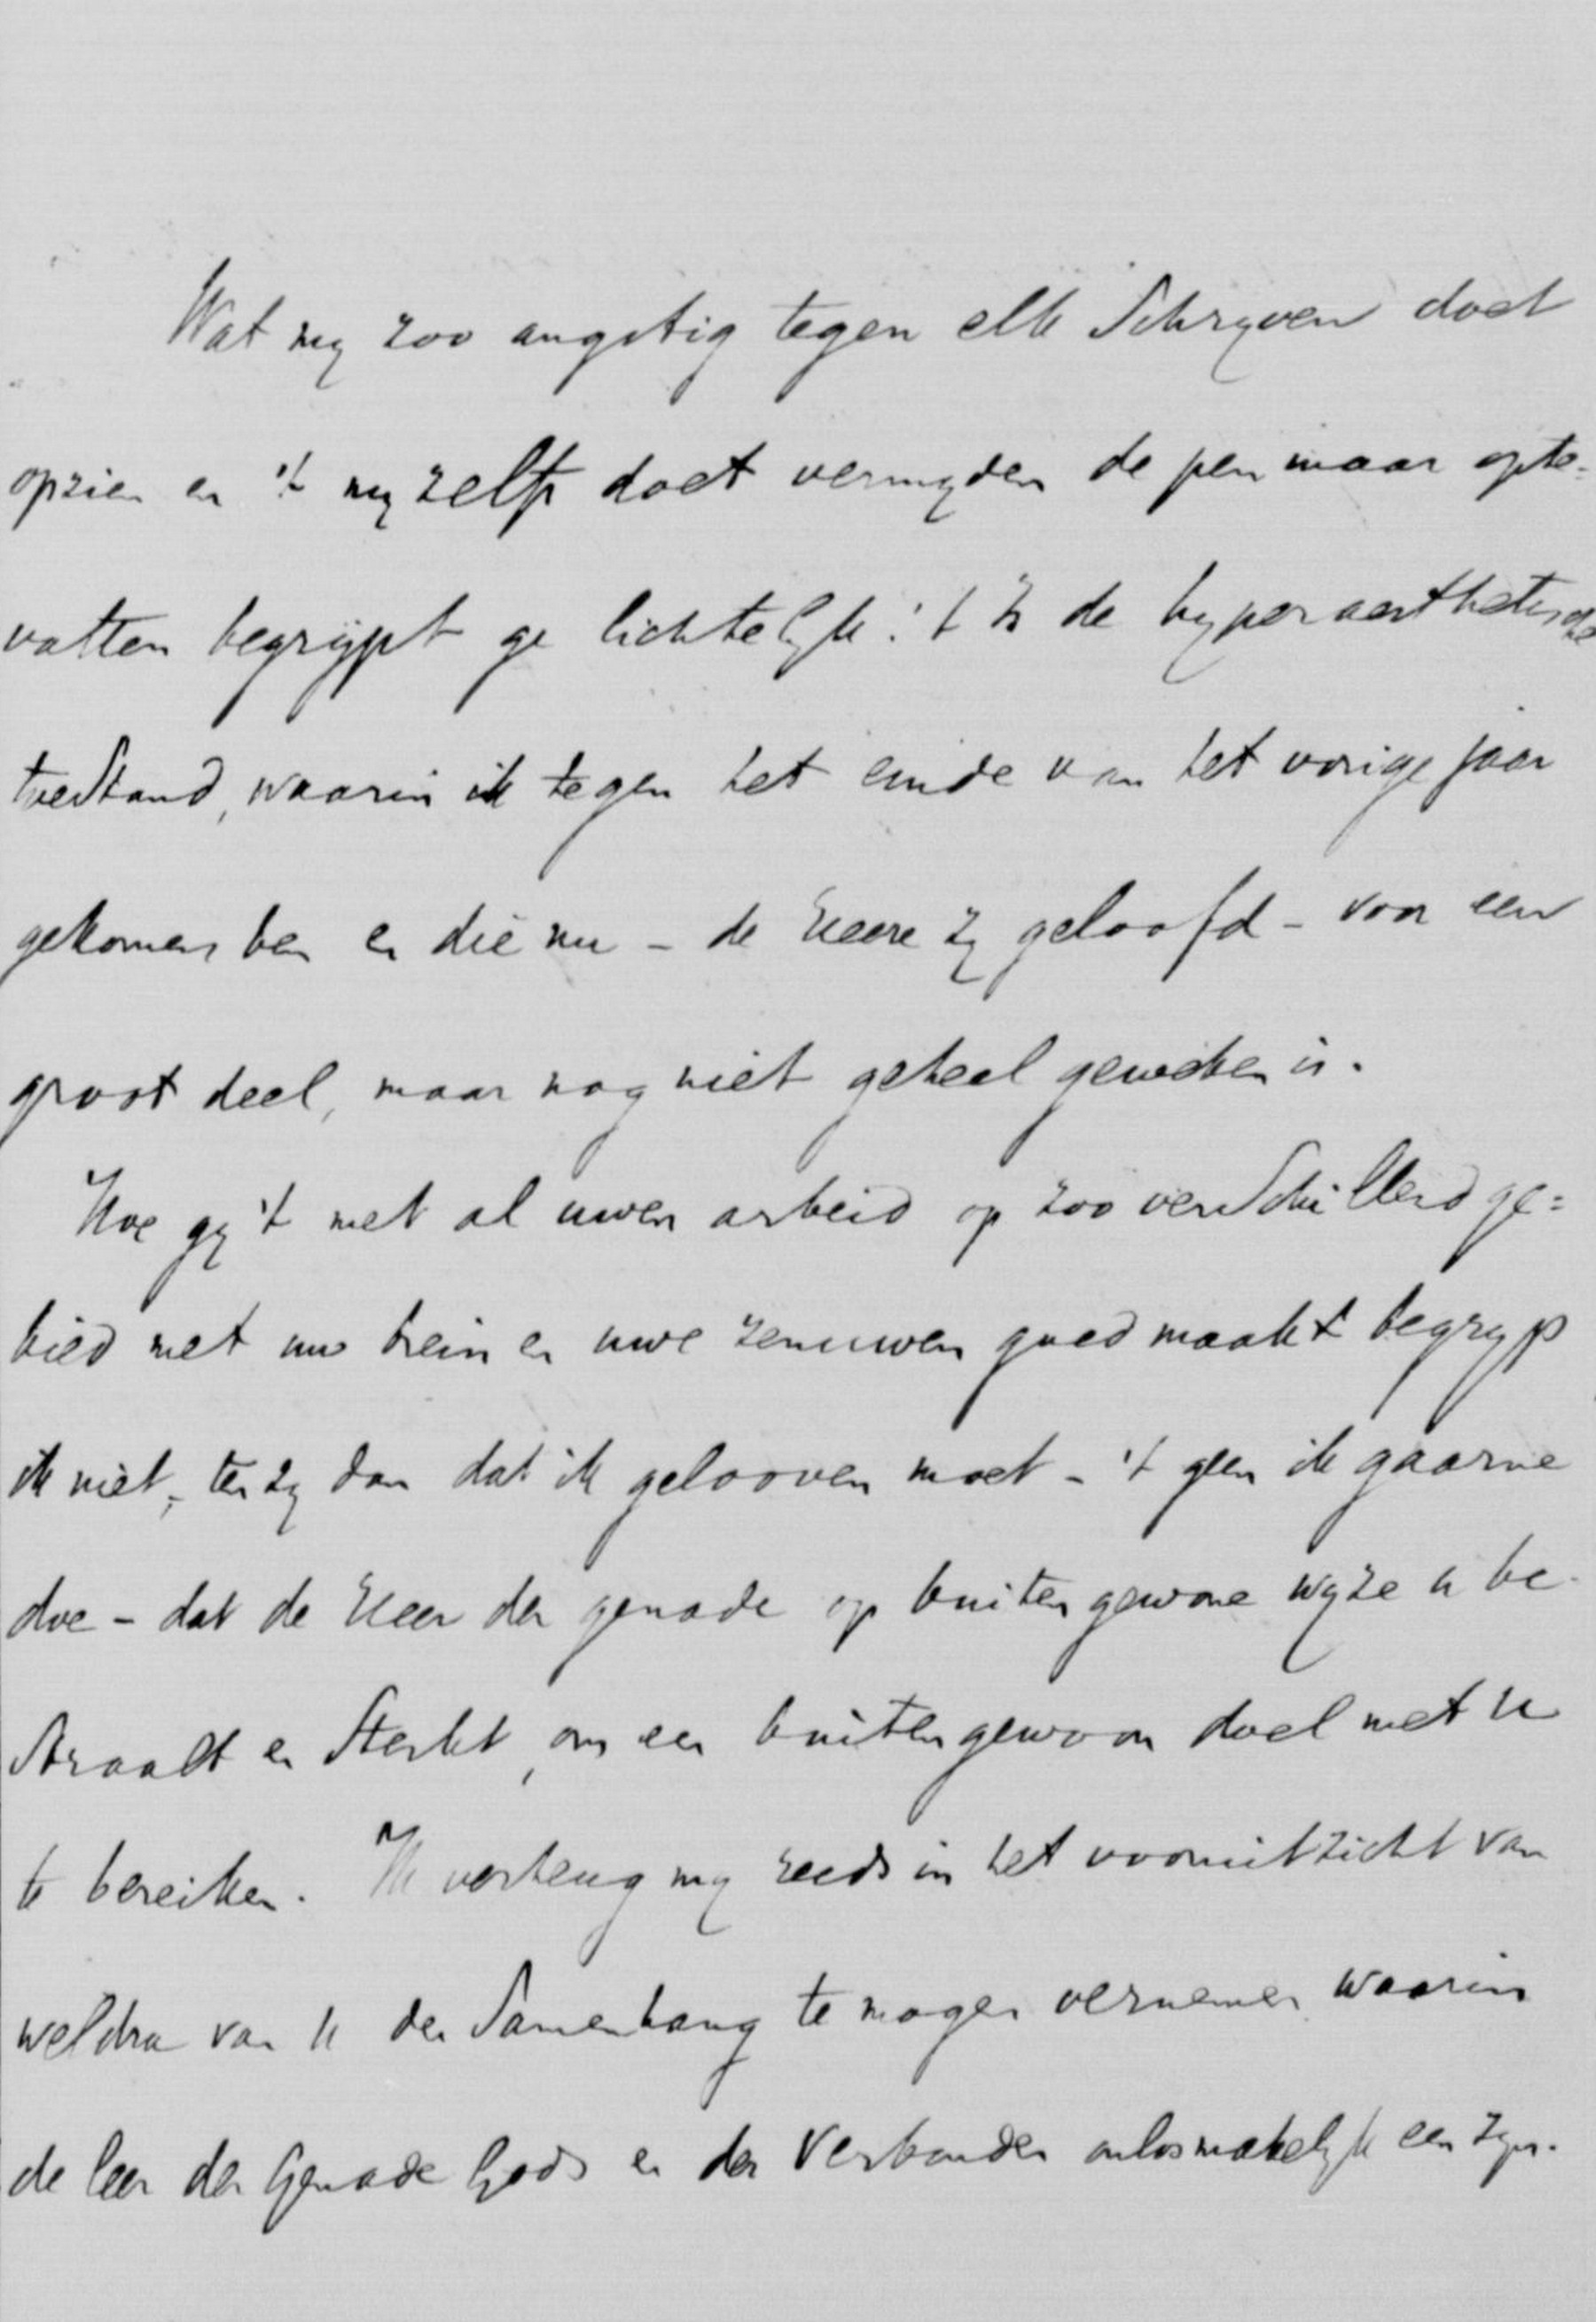 Wat my zoo angstig tegen elk Schryven doet
opzien en 't my zelfs doet vermyden de pen maar opte=
vatten begrypt ge lichtelyk: 't Is de hyperaesthetische
toestand, waarin ik tegen het einde van het vorige jaar
gekomen ben en die nu - de Heere zy geloofd - voor een
groot deel, maar nog niet geheel geweken is.
Hoe gy 't met al uwen arbeid op zoo verschillend ge=
bied met uw brein en uwe zenuwen goed maakt begryp
ik niet, ten zy dan dat ik gelooven moet - 't geen ik gaarne
doe - dat de Heer der genade op buitengewone wyze u be-
straalt en Sterkt, om een buitengewoon doel met u
te bereiken. Ik verheug my reeds in het vooruitzicht van
weldra van U den Samenhang te mogen vernemen waarin
de leer der Genade Gods en der Verbonden onlosmakelyk een zyn.